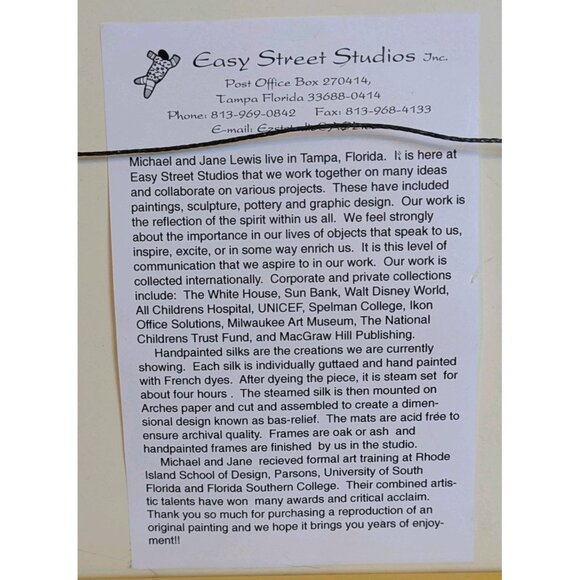 Easy Street Studios Inc.
Post Office Box 270414,
Tampa Florida 33688-0414
Phone: 813-969-0842 Fax: 813-968-4133
E-mail:
Michael and Jane Lewis live in Tampa, Florida. It is here at
Easy Street Studios that we work together on many ideas
and collaborate on various projects. These have included
paintings, sculpture, pottery and graphic design. Our work is
the reflection of the spirit within us all. We feel strongly
about the importance in our lives of objects that speak to us,
inspire, excite, or in some way enrich us. It is this level of
communication that we aspire to in our work. Our work is
collected internationally. Corporate and private collections
include: The White House, Sun Bank, Walt Disney World,
All Childrens Hospital, UNICEF, Spelman College, Ikon
Office Solutions, Milwaukee Art Museum, The National
Childrens Trust Fund, and MacGraw Hill Publishing.
Handpainted silks are the creations we are currently
showing. Each silk is individually guttaed and hand painted
with French dyes. After dyeing the piece, it is steam set for
about four hours . The steamed silk is then mounted on
Arches paper and cut and assembled to create a dimen-
sional design known as bas-relief. The mats are acid free to
ensure archival quality. Frames are oak or ash and
handpainted frames are finished by us in the studio.
Michael and Jane recieved formal art training at Rhode
Island School of Design, Parsons, University of South
Florida and Florida Southern College. Their combined artis-
tic talents have won many awards and critical acclaim.
Thank you so much for purchasing a reproduction of an
original painting and we hope it brings you years of enjoy-
ment!!